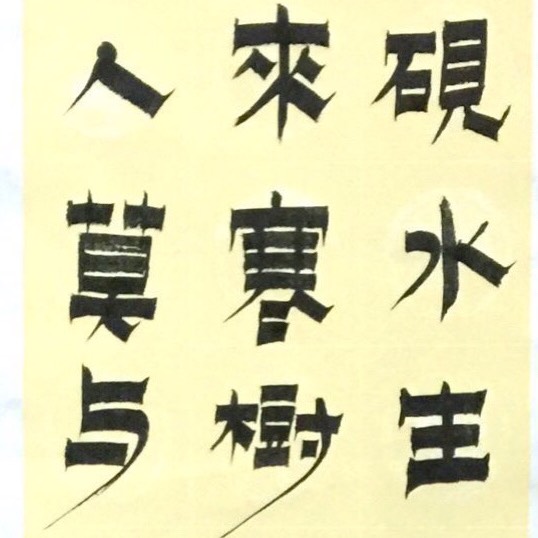 硯水生
來寒樹
人莫与